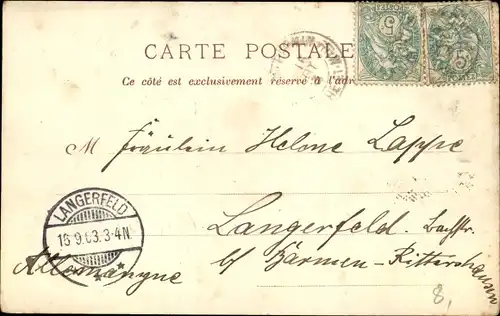 CARTE POSTALE
Ce côté est exclusivement réservé à l'adr
M Fräulein Helene Lappe
LANGERFELD
16.9.03.3-4N
Langerfeld. Bachstr.
b/ Barmen-Rittershausen
Allemangne
8,